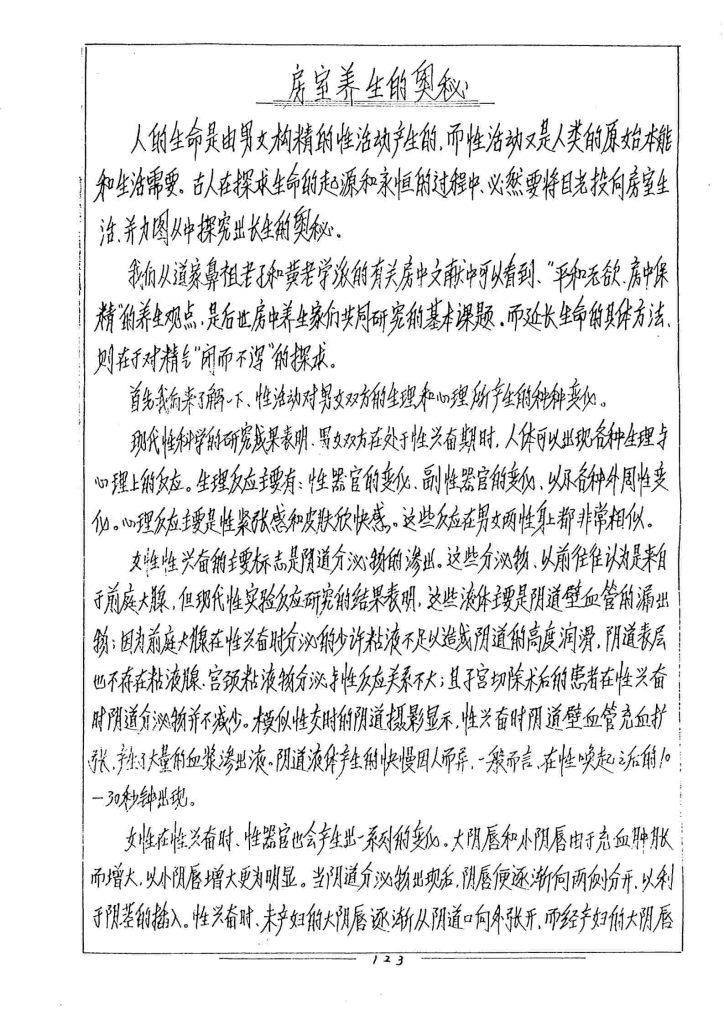 房室养生的奥秘
人的生命是由男女构精的性活动产生的,而性活动又是人类的原始本能
和生活需要。古人在探求生命的起源和永恒的过程中、必然要将目光投向房室生
活、并力图从中探究出长生的奥秘。
我们从道家鼻祖老子和黄老学派的有关房中文献中可以看到、“平和无欲、房中保
精”的养生观点,是后世房中养生家们共同研究的基本课题。而延长生命的具体方法、
则在于对精气“闭而不泻”的探求。
首先我们来了解一下、性活动对男女双方的生理和心理所产生的种种变化。
现代性科学的研究成果表明、男女双方在处于性兴奋期时、人体可以出现各种生理与
心理上的反应。生理反应主要有:性器官的变化、副性器官的变化、以及各种外周性变
化。心理反应主要是性紧张感和皮肤欣快感。这些反应在男女两性身上都非常相似。
女性性兴奋的主要标志是阴道分泌物的渗出。这些分泌物、以前往往认为是来自
于前庭大腺,但现代性实验反应研究的结果表明,这些液体主要是阴道壁血管的漏出
物;因为前庭大腺在性兴奋时分泌的少许粘液不足以造成阴道的高度润滑,阴道表层
也不存在粘液腺、宫颈粘液物分泌与性反应关系不大;且子宫切除术后的患者在性兴奋
时阴道分泌物并不减少。模似性交时的阴道摄影显示,性兴奋时阴道壁血管充血扩
张、产生了大量的血浆渗出液。阴道液体产生的快慢因人而异、一般而言、在性唤起之后的10
-30秒钟出现。
女性在性兴奋时、性器官也会产生出一系列的变化。大阴唇和小阴唇由于充血肿胀
而增大,以小阴唇增大更为明显。当阴道分泌物出现后,阴唇便逐渐向两侧分开,以利
于阴茎的插入。性兴奋时、未产妇的大阴唇逐渐从阴道口向外张开,而经产妇的大阴唇
123